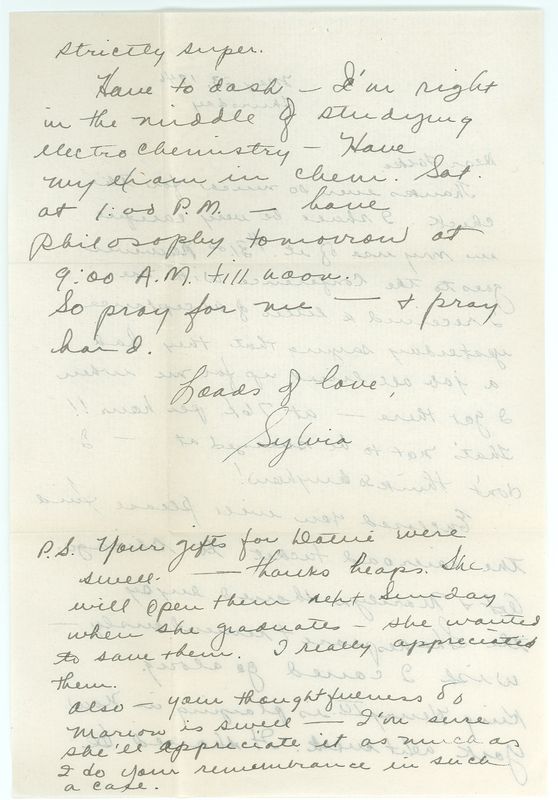 strictly super.
Have to dash — I'm right
in the middle of studying
electrochemistry — Have
my exam in chem. Sat.
at 1:00 P.M. — have
philosophy tomorrow at
9:00 A.M. till noon.
So pray for me — & pray
hard.
Loads of love,
Sylvia
P.S. Your gifts for Dottie were
swell. — thanks heaps. She
will open them next Sunday
when she graduates — she wanted
to save them. I really appreciated
them.
Also — your thoughtfulness to
Marion is swell — I'm sure
she'll appreciate it as much as
I do your remembrance in such
a case.